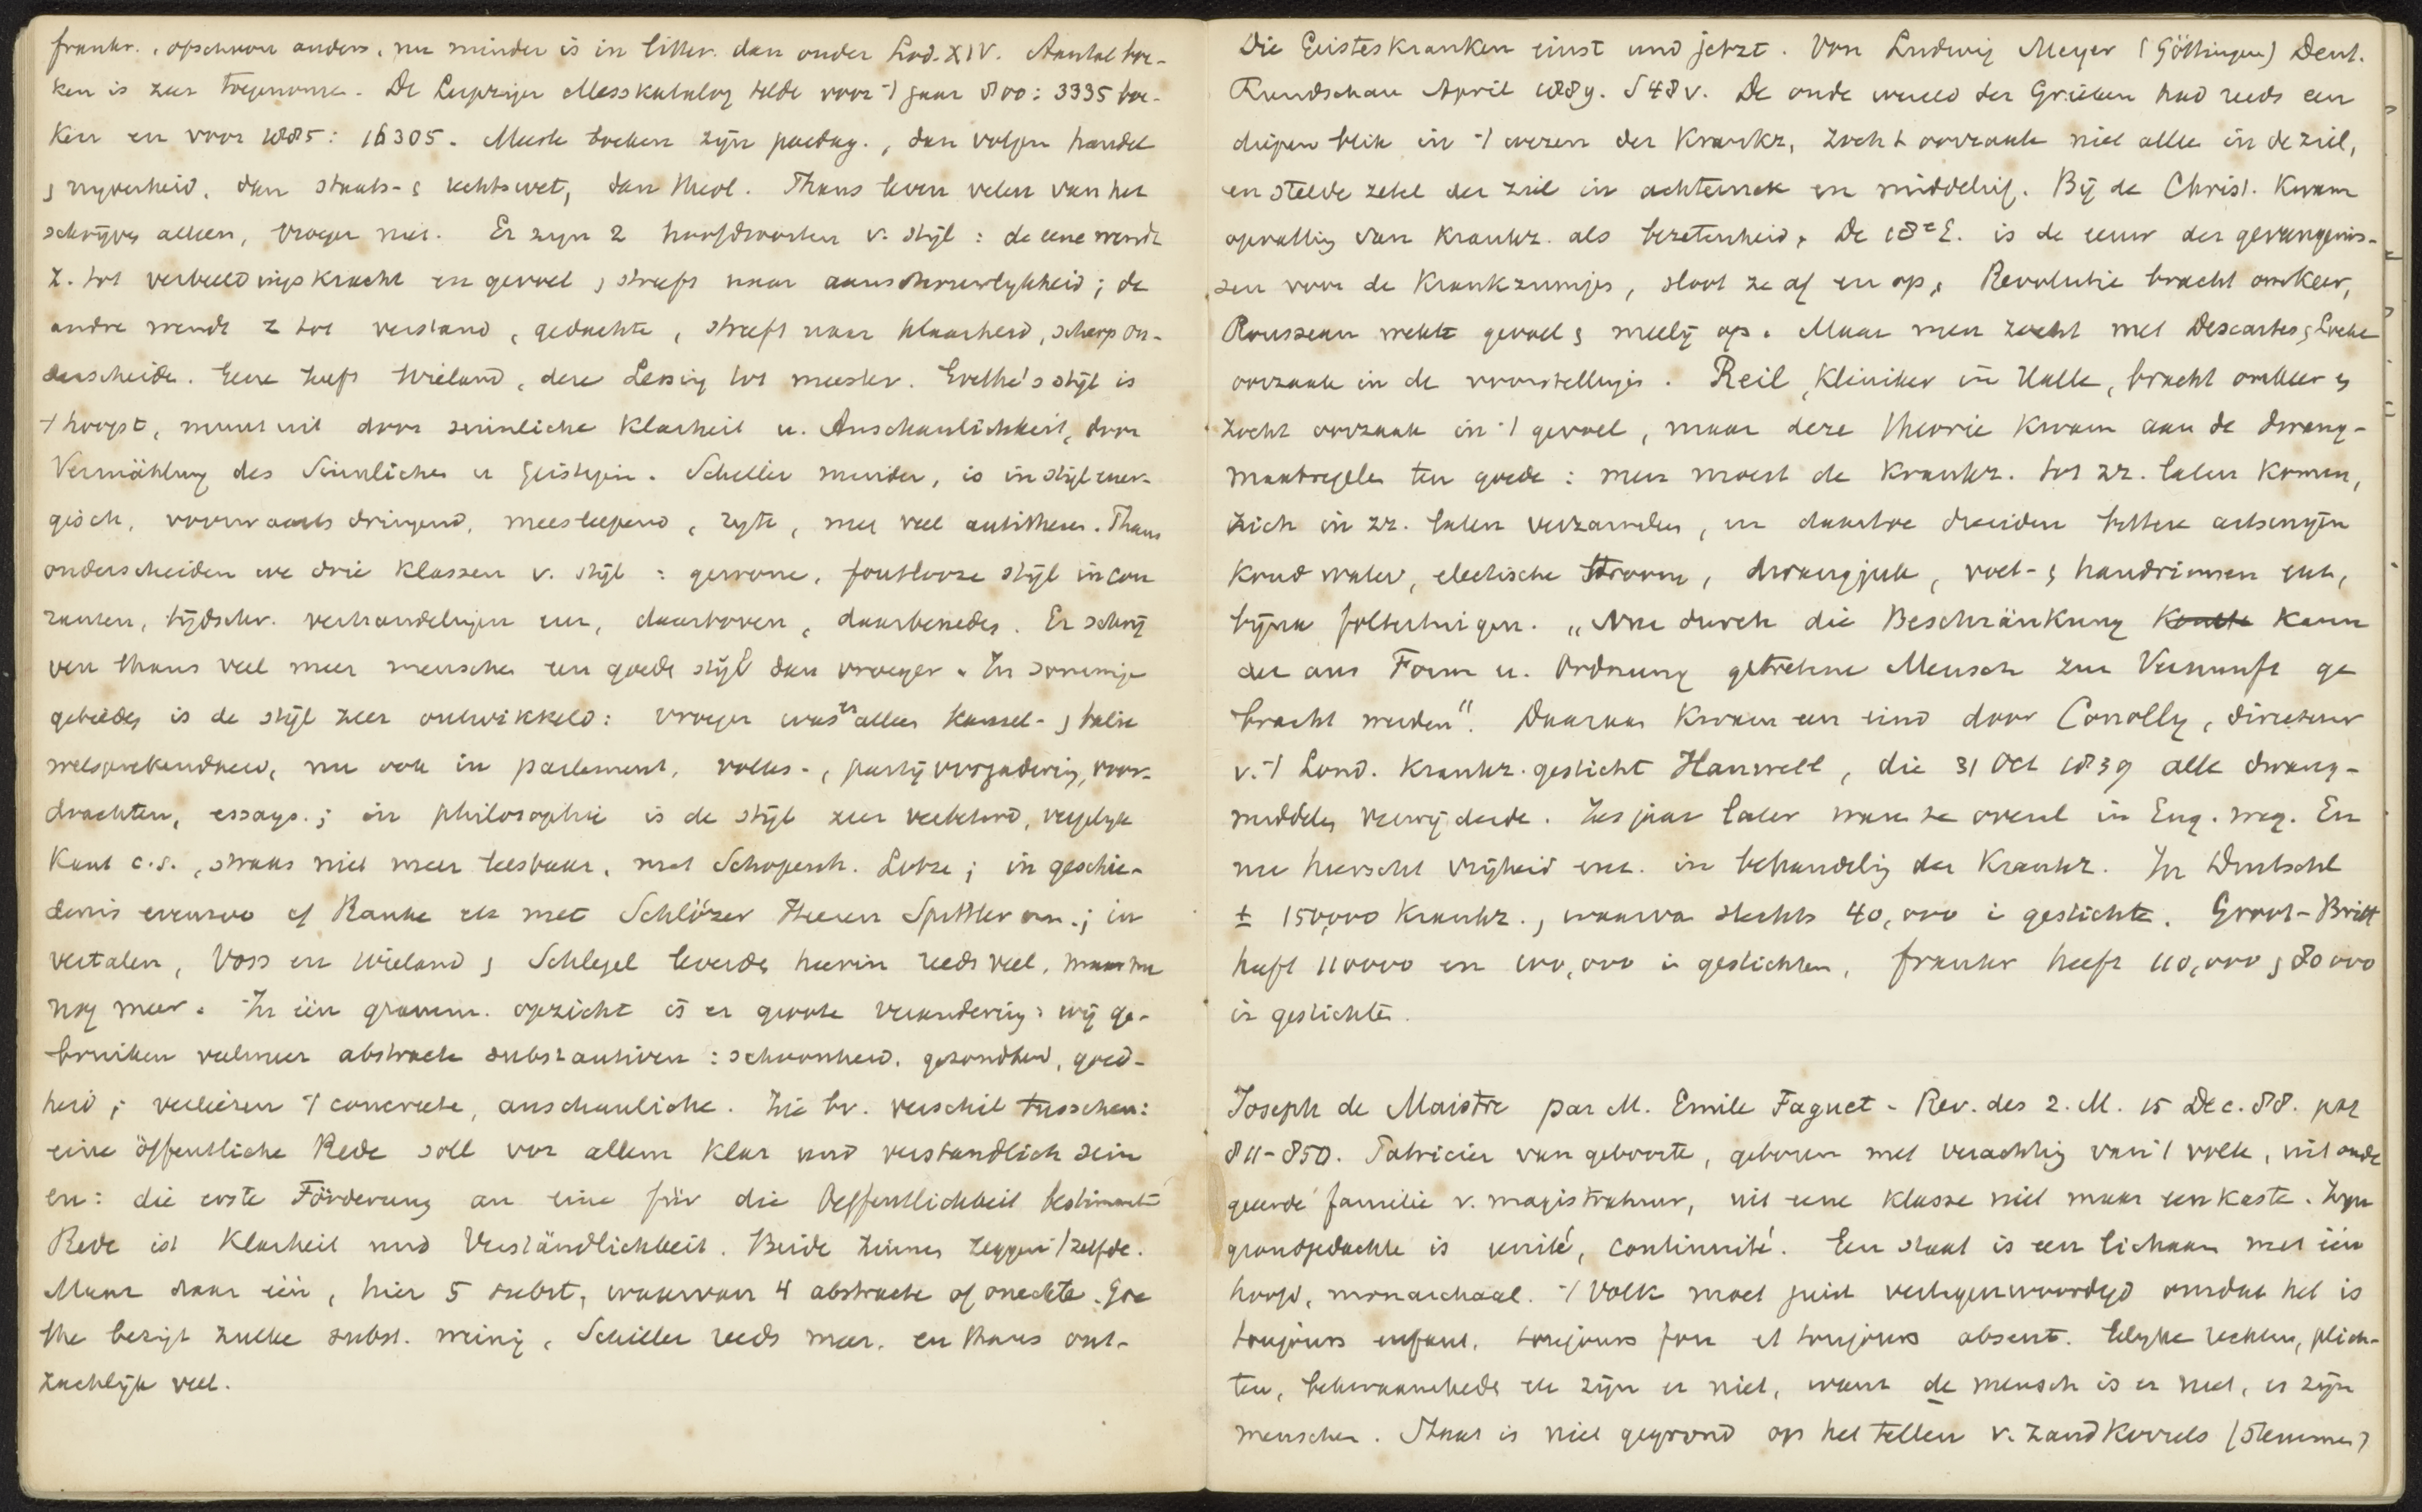 frankr., ofschoon anders, nu minder is in litter. dan onder Lod. XIV. Aantal boe-
ken is zeer toegenomen. De Leipziger Messkatalog telde voor 't jaar 800: 3335 boe-
ken en voor 1885: 16305. Meeste boeken zijn paedag., dan volgen handel
& nyverheid, dan staats- & rechtswet, dan theol. Thans leven velen van het
schrijven alleen, vroeger niet. Er zyn 2 hoofdsoorten v. stijl: de eene wendt
z. tot verbeeldingskracht en gevoel, streeft naar aanschouwlykheid; de
andre wendt z tot verstand, gedachte, streeft naar klaarheid, scherp on-
derscheide. Gene heeft Wieland, deze Lessing tot meester. Goethe's stijl is
't hoogst, munt uit door sinnliche Klarheit u. Anschaulichkeit, door
Vermählung des Sinnlichen u Geistigen. Schiller minder, is in stijl ener-
gisch, voorwaarts dringend, meeslepend, , met veel antithesen. Thans
onderscheiden we drie klassen v. stijl: gewone, foutlooze stijl in cou
ranten, tijdschr. verhandelingen enz, daarboven, daarbeneden. Er schrij
ven thans veel meer menschen een goede stijl dan vroeger. In sommige
gebieden is de stijl zeer ontwikkeld: vroeger was er alleen kansel- & balie
welsprekendheid, nu ook in parlement, volks-, partijvergadering, voor-
drachten, essays.; in philosophie is de stijl zeer verbeterd, vergelyk
Kant c.s., thans niet meer leesbaar, met Schopenh. Lotze; in geschie-
denis evenzoo cf Ranke etc met Schlözer Heeren Spittler enz.; in
vertalen, Voss en Wieland & Schlegel leverden hierin reeds veel, maar nu
nog meer. In één gramm. opzicht is er groote verandering: wij ge-
bruiken veelmeer abstracte substantiven: schoonheid, gezondheid, goed-
heid; verliezen 't concrete, anschauliche. Zie bv. verschil tusschen:
eine öffentliche Rede soll vor allem klar und verständlich sein
en: die erste Förderung an eine für die Oeffentlichkeit bestimmte
Rede ist Klarheit und Verständlichkeit. Beide zinnen zeggen 't zelfde.
Maar daar één, hier 5 subst, waarvan 4 abstracte of onechte. Goe
the bezigt zulke subst. weinig, Schiller reeds meer, en thans ont-
zachlijk veel.
Die Geisteskranken einst und jetzt. Von Ludwig Meyer (Göttingen) Deut.
Rundschau April 1889. S 48 v. De oude wereld der Grieken had reeds een
diepen blik in 't wezen der Krankz, zocht oorzaak niet alleen in de ziel,
en stelde zetel der ziel in achterhoofd en middelrif. Bij de Christ. kwam
opvatting van krankz. als bezetenheid. De 18e E. is de eeuw der gevangenis-
sen voor de krankzinnigen, sloot ze af en op. Revolutie bracht omkeer,
Rousseau wekte gevoel & meelij op. Maar men zocht met Descartes & Locke
oorzaak in de voorstellingen. Reil, Kliniker in Halle, bracht omkeer &
zocht oorzaak in 't gevoel, maar deze theorie kwam aan de dwang-
maatregelen ten goede: men moest de krankz. tot zz. laten komen,
zich in zz. laten verzamelen, en daartoe dienden bittere artsenijen
koud water, electrische stroom, dwangjak, voet- & handriemen enz,
bijna folteringen. „Nur durch die Beschränkung ~~konnte~~ kann
der aus Form u. Ordnung getretene Mensch zur Vernunft ge
bracht werden". Daaraan kwam een eind door Conolly, directeur
v. 't Lond. krankz. gesticht Hanwell, die 31 Oct 1839 alle dwang-
middelen verwijderde. Zes jaar later waren ze overal in Eng. weg. En
nu heerscht vrijheid enz. in behandeling der krankz. In Duitschl
± 150,000 krankz., waarvan slechts 40,000 i gestichte. Groot-Britt
heeft 110000 en 100,000 in gestichten, frankr heeft 110,000 & 80000
in gestichten.
Joseph de Maistre par M. Emile Faguet - Rev. des 2. M. 15 Dec. 88. pag
811-850. Patricier van geboorte, geboren met verachting van 't volk, uit oude
geeerde familie v. magistratuur, uit eene klasse niet maar een kaste. Zijn
grondgedachte is unité, continuité. Een staat is een lichaam met één
hoofd, monarchaal. 't Volk moet juist vertegenwoordigd omdat het is
toujours enfant, toujours fou et toujours absent. Gelyke rechten, plich-
ten, bekwaamheden etc zijn er niet, want de mensch is er niet, er zijn
menschen. Staat is niet gegrond op het tellen v. zandkorrels (stemmen)